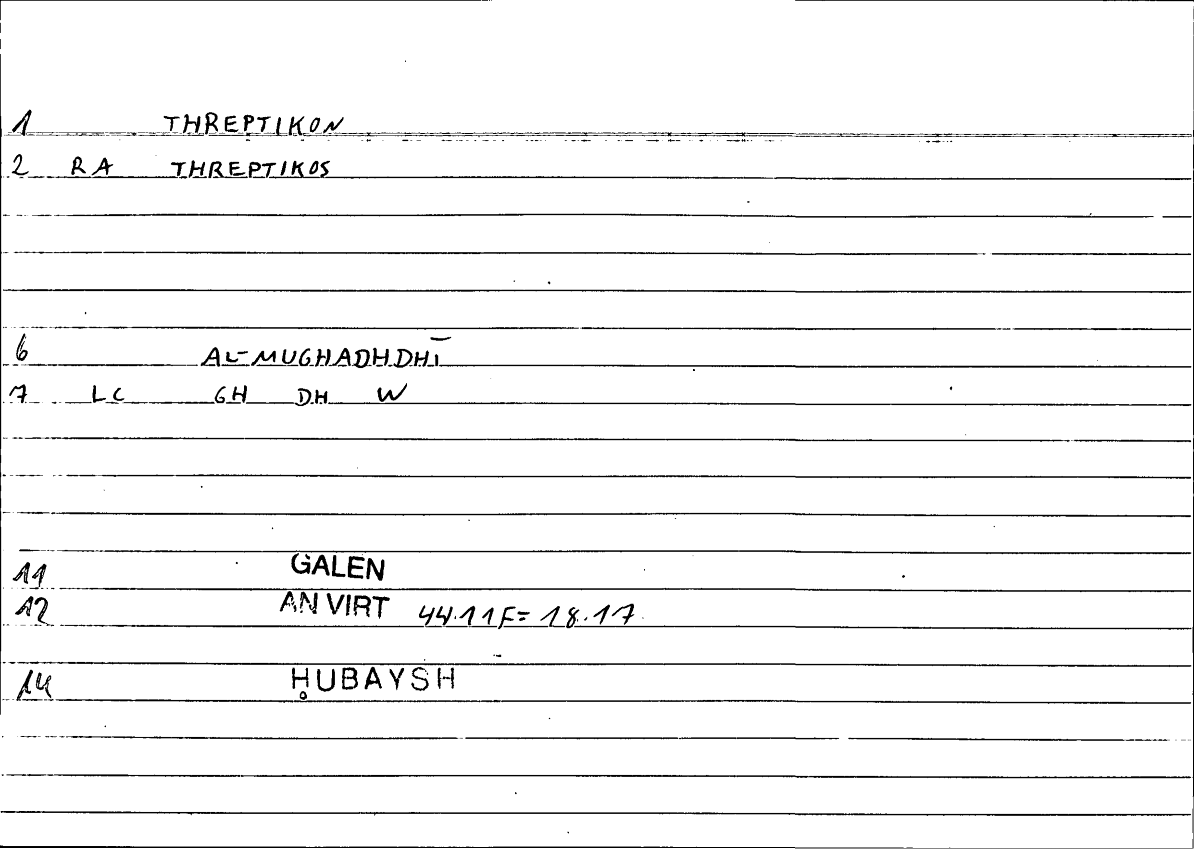 1 THREPTIKON
2 RA THREPTIKOS
6 AL-MUGHADHDHĪ
7 LC GH DH W
11 GALEN
12 AN VIRT 44.11F= 18.17
14 ḤUBAYSH